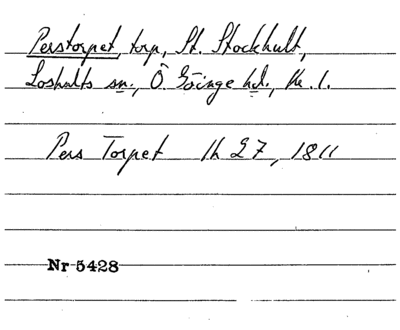 Perstorpet, torp, St. Stockhult,
Loshults sn., Ö. Göinge hd., Kr. l.
Pers Torpet lh 27, 1811
Nr 5428